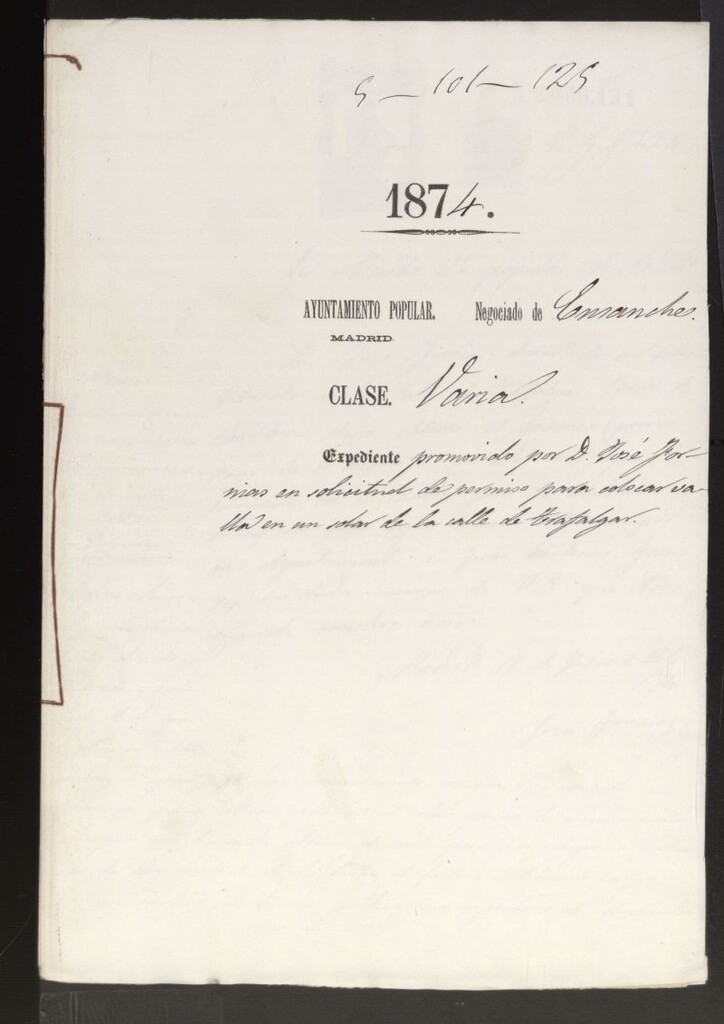 5 – 101 – 125
1874.
AYUNTAMIENTO POPULAR. Negociado de Ensanche.
MADRID.
CLASE. Varia.
Expediente promovido por D. José For-
nias en solicitud de permiso para colocar va-
lla en un solar de la calle de Trafalgar.